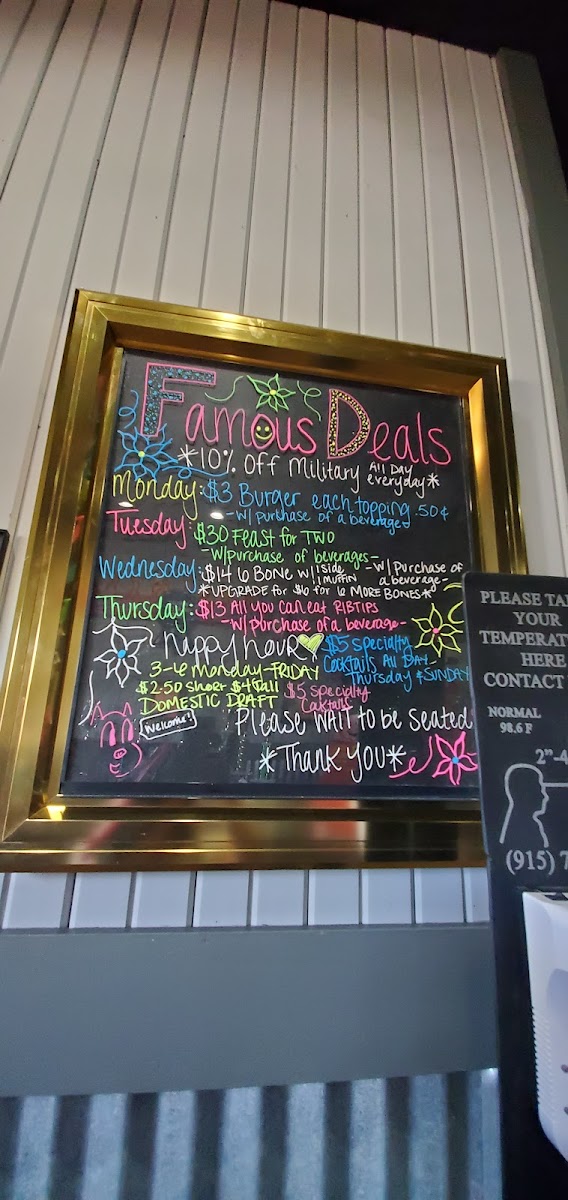 Famous Deals
*10% Off Military All Day everyday*
Monday: $3 Burger each topping .50¢
-w/ purchase of a beverage-
Tuesday: $30 Feast for Two
-w/purchase of beverages-
Wednesday: $14 6 Bone w/ 1 side 1 muffin -w/ Purchase of a beverage-
*UPGRADE for $6 for 6 MORE BONES*
Thursday: $13 All You Can eat RIBTIPS
-w/ purchase of a beverage-
Happy hour
3-6 Monday-FRIDAY
$2.50 short $4 tall
DOMESTIC DRAFT
$5 specialty Cocktails
$5 specialty
Cocktails All Day
Thursday & SUNDAY
Welcome!
Please WAIT to be seated
*Thank you*
PLEASE TA
YOUR
TEMPERAT
HERE
CONTACT
NORMAL
98.6 F
2"-4
(915) 7